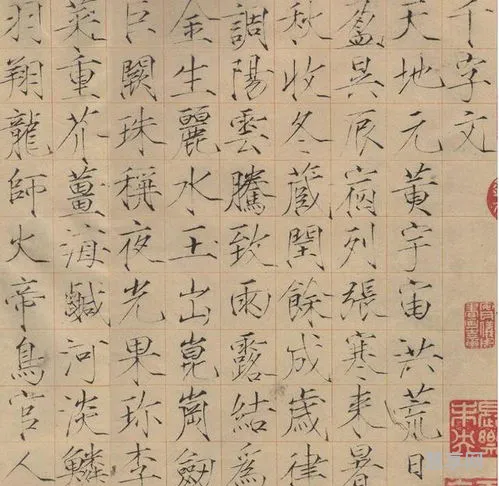 千字文
天地元黃宇宙洪荒日
盈昃辰宿列張寒來暑
秋收冬藏閏餘成歲律
調陽雲騰致雨露結爲
金生麗水玉出崑崗劍
巨闕珠稱夜光果珍李
菜重芥薑海鹹河淡鱗
羽翔龍師火帝鳥官人